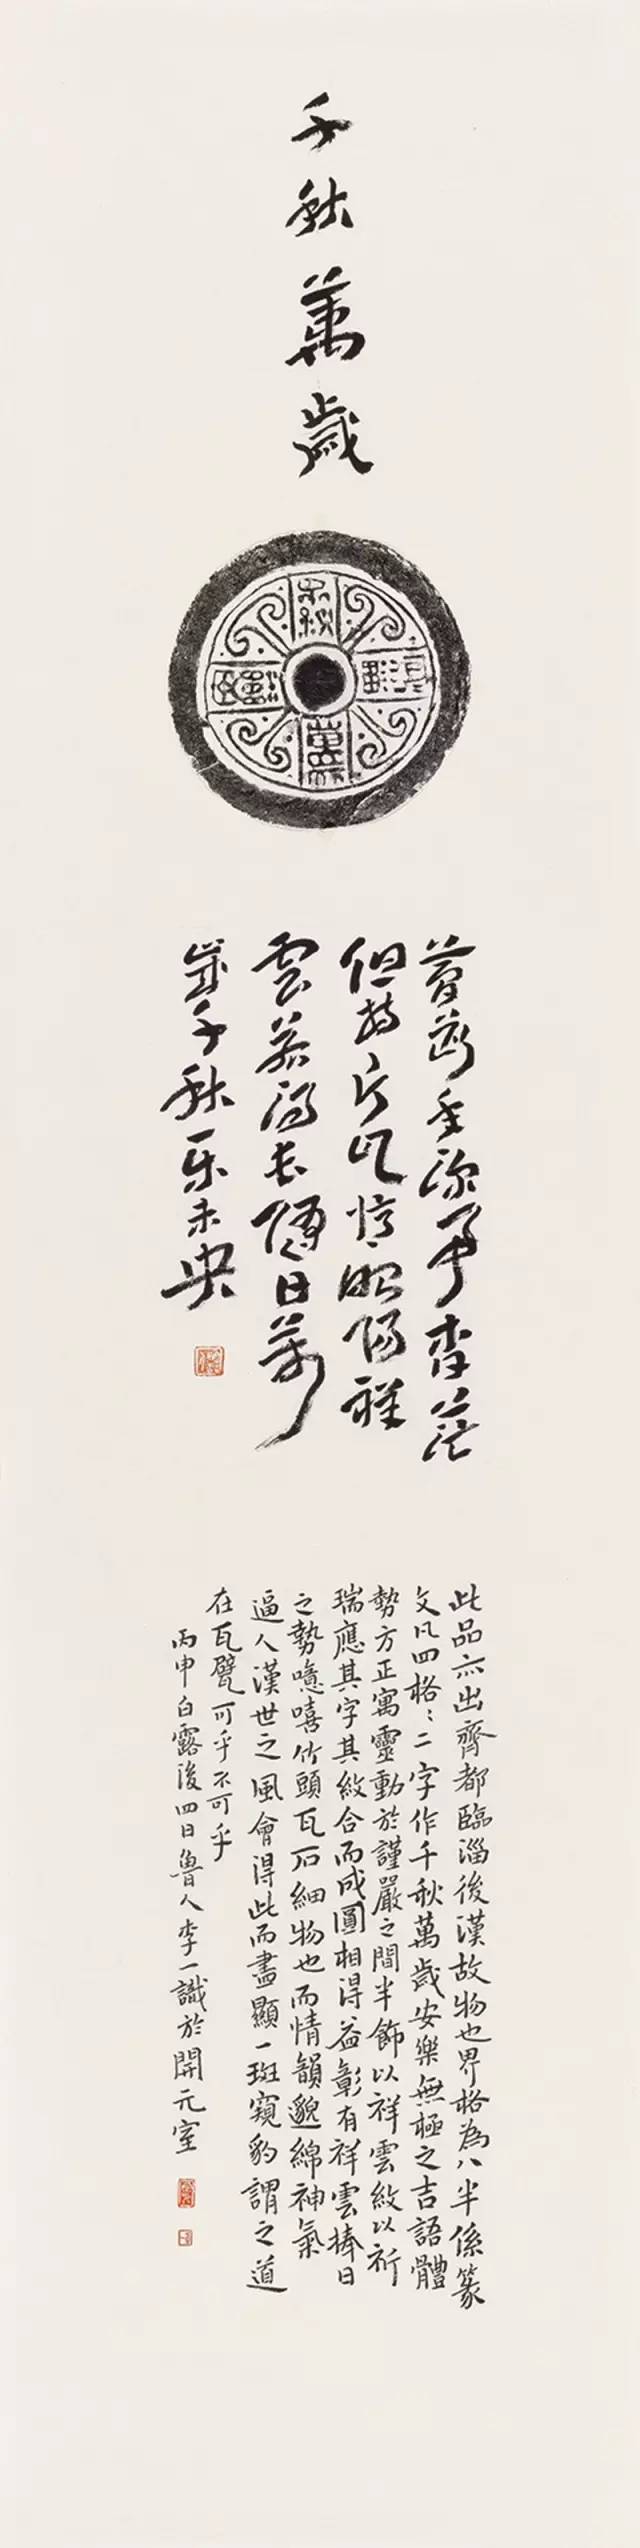 千秋萬歲
千秋
萬歲
安樂
無極
但持片瓦憶昭陽祥
雲若得長隨日萬
歲千秋樂未央
此品亦出齊都臨淄後漢故物也界格為八半係篆
文凡四格々二字作千秋萬歲安樂無極之吉語體
勢方正寓靈動於謹嚴之間半飾以祥雲紋以祈
瑞應其字其紋合而成圓相得益彰有祥雲捧日
之勢噫嘻竹頭瓦石細物也而情韻邈綿神氣
逼人漢世之風會得此而盡顯一斑窺豹謂之道
在瓦甓可乎不可乎
丙申白露後四日魯人李一識於開元室